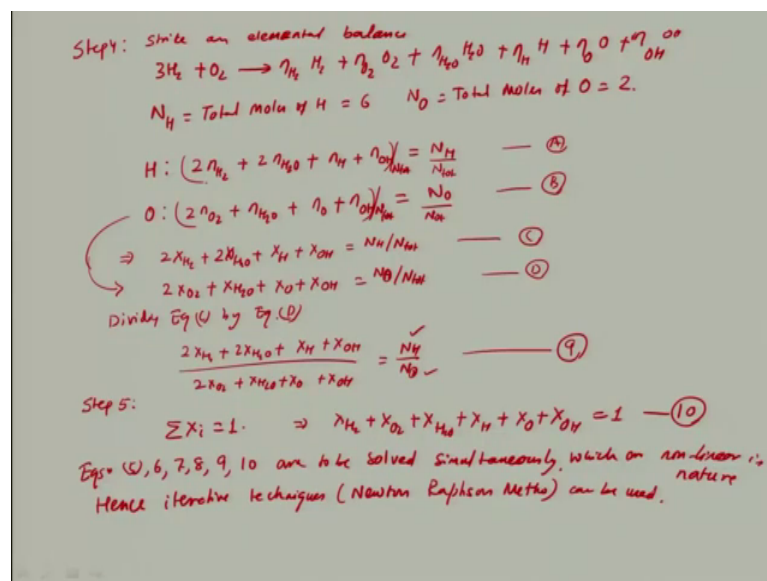 Step 4: Strike an elemental balance
3H₂ + O₂ ⟶ η_H₂ H₂ + η_O₂ O₂ + η_H₂O H₂O + η_H H + η_O O + η_OH OH
N_H = Total moles of H = 6 N_O = Total moles of O = 2.
H : (2η_H₂ + 2η_H₂O + η_H + η_OH)/N_tot = N_H/N_tot — (A)
O : (2η_O₂ + η_H₂O + η_O + η_OH)/N_tot = N_O/N_tot — (B)
⇒ 2x_H₂ + 2x_H₂O + x_H + x_OH = N_H/N_tot — (C)
2x_O₂ + x_H₂O + x_O + x_OH = N_O/N_tot — (D)
Dividing Eq (C) by Eq. (D)
(2x_H₂ + 2x_H₂O + x_H + x_OH)/(2x_O₂ + x_H₂O + x_O + x_OH) = N_H ✓/N_O ✓ — (9)
Step 5:
Σx_i = 1. ⇒ x_H₂ + x_O₂ + x_H₂O + x_H + x_O + x_OH = 1 — (10)
Eqs. (5), 6, 7, 8, 9, 10 are to be solved simultaneously, which are non-linear in
nature
Hence iterative techniques (Newton Raphson Metho) can be used.